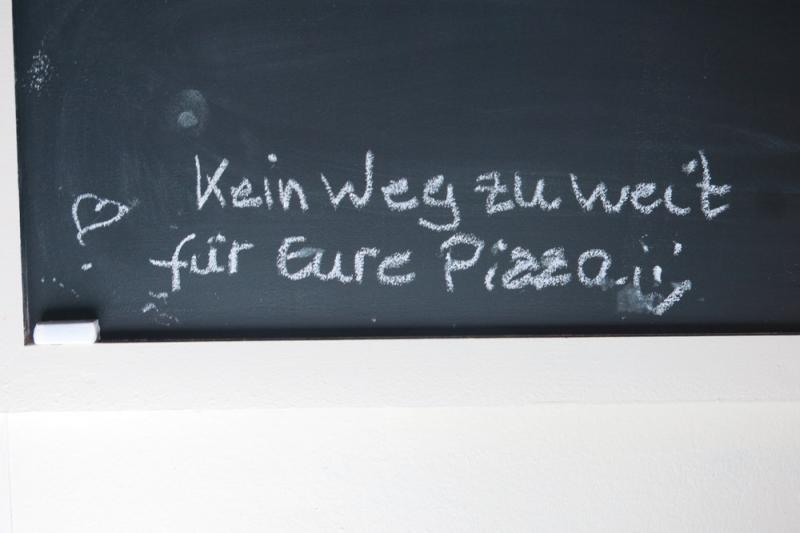 Kein Weg zu weit
für Eure Pizza